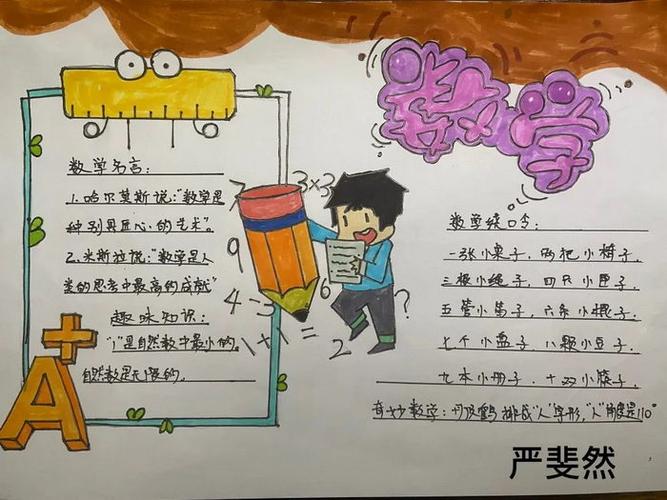 数学
数学名言：
1.哈尔莫斯说："数学是
种别具匠心的艺术"。
2.米斯拉说："数学是人
类的思考中最高的成就"
趣味知识：
"1"是自然数中最小的。
自然数是无限的。
A+
3×3
9
4-3
6
1+1=
2
?
数学绕口令：
一张小桌子，两把小椅子，
三根小绳子，四只小匣子，
五管小笛子，六条小棍子，
七个小盒子，八颗小豆子，
九本小册子，十双小筷子，
奇妙数学：丹顶鹤排成"人"字形，"人"角度是110°
严斐然